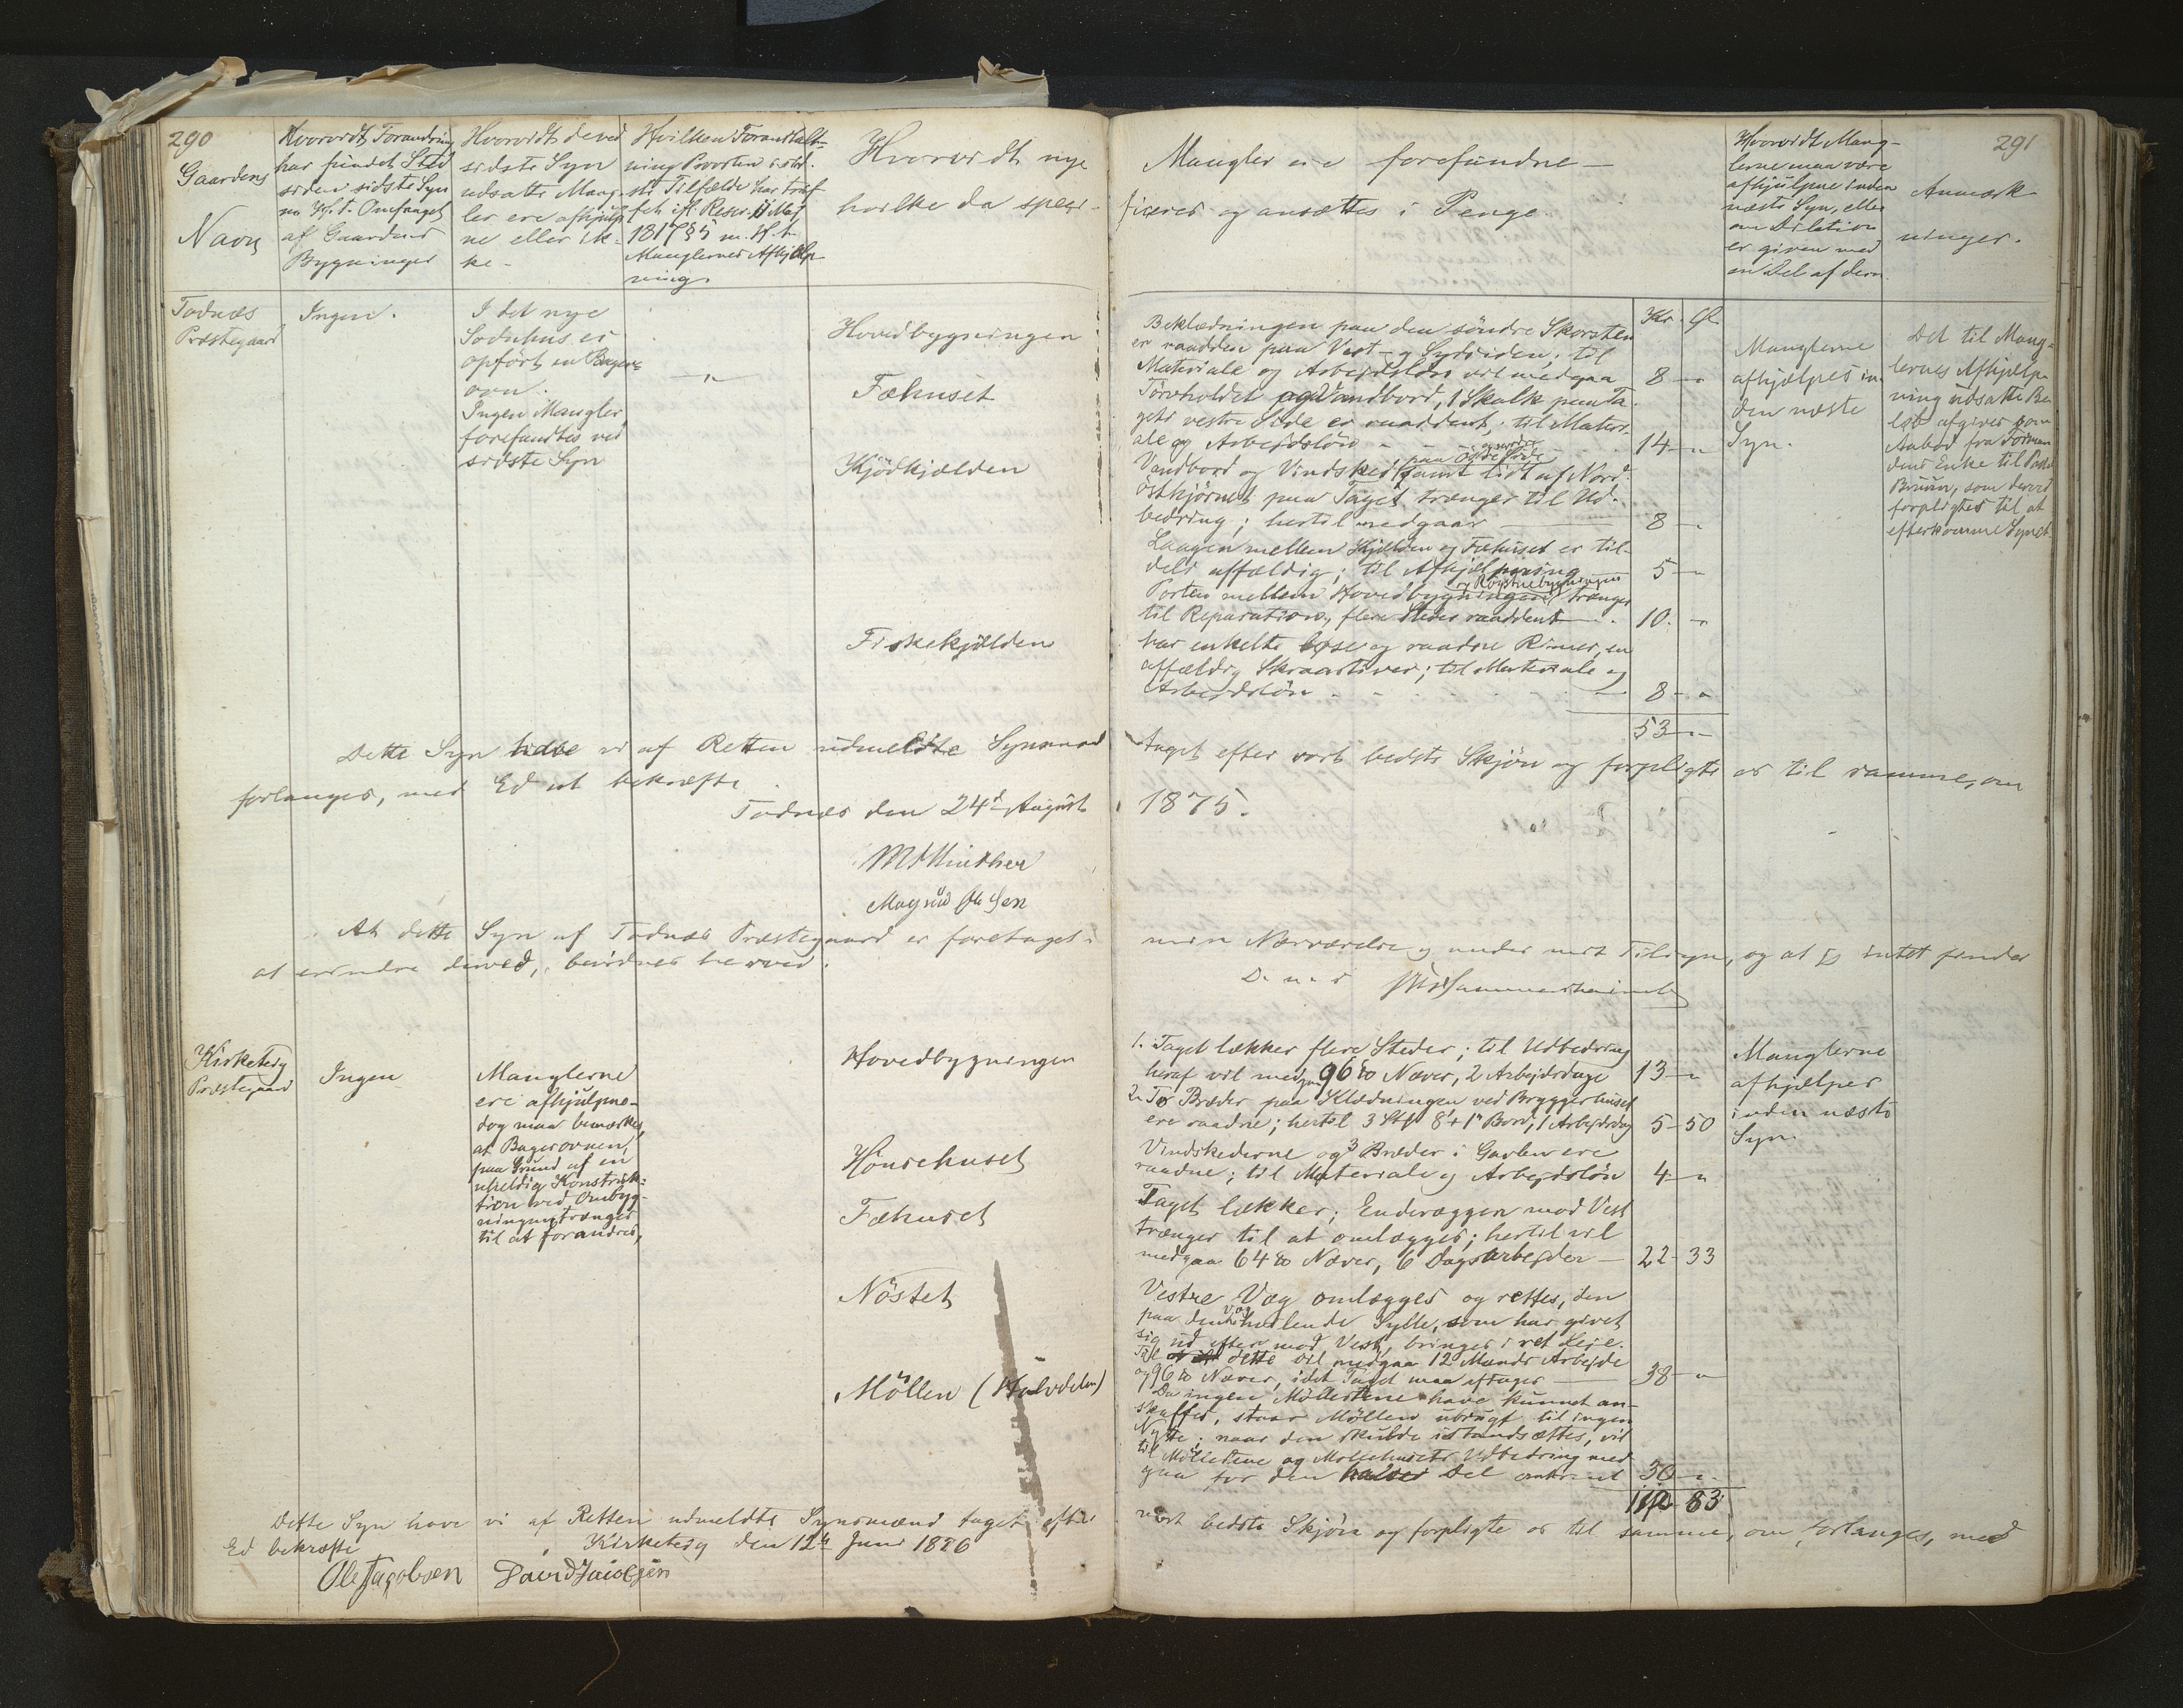 290
Gaardens
Navn
Hvorvidt Forandring
har fundet Sted
siden sidste Syn
m. H. t. Omfanget
af Gaardens
Bygninger
Hvorvidt de ved
sidste Syn
udsatte Mang-
ler ere afhjulp
ne eller ik-
ke.
Hvilken Foranstalt-
ning Provsten i sid-
ste Tilfælde har truf
fet ifl. Rescr. Maj
1817 § 5 m. H. t.
Manglernes Afhjælp-
ning.
Hvorvidt nye
hvilke da speci-
Mangler ere forefundne
ficeres og ansættes i Penge.
Hvorvidt Mang-
lerne maa være
afhjulpne inden
næste Syn, eller
om Dilation
er given med
en Del af dem.
291
Anmærk
ninger.
Todnæs
Præstegaard
Ingen.
I det nye
er
opført en Bager-
ovn.
Ingen Mangler
forefandtes ved
sidste Syn
Hovedbygningen
Fæhuset
Kjødkjælden
Fiskekjælden
Kr. Ø.
Beklædningen paa den søndre Skorsten
er raadden paa Vest- og Sydsiden; til
Materiale og Arbejdsløn vil medgaa 8 - "
Torvholdet og Vandbord, 1 Skalk paa Ta-
gets vestre Side er raaddent; til Materi-
ale og Arbejdsløn 14 - "
Vandbord og Vindsked paa Østre Side samt lidt af Nord-
østhjørnet paa Taget trænger til Ud-
bedring; hertil medgaar 8 - "
Laagen mellem Kjælden og Fæhuset er til-
dels affældig; til Afhjælpning 5 - "
Porten mellem Hovedbygningen trænger
til Reparation, flere Steder raaddent 10. - "
har enkelte løse og raadne Rimer, en
affældig; til Materiale og
Arbejdsløn 8 - "
53 - "
Manglerne
afhjælpes in-
den næste
Syn.
Det til Mang-
lernes Afhjælp-
ning udsatte Be-
løb afgives som
Aabod fra Forman
dens Enke til Pastor
Bruun, som derved
forpligtes til at
efterkomme Synet.
Dette Syn have vi af Retten udmeldte Synsmænd taget efter vort bedste Skjøn og forpligte os til samme, om
forlanges, med Ed at bekræfte.
Todnæs den 24de August 1875.
At dette Syn af Todnæs Præstegaard er foretaget i min Nærværelse og under mit Tilsyn, og at jeg intet finder
at erindre derved, bevidnes herved.
D. u. s.
Kirketeig
Præstegaard
Ingen
Manglerne
ere afhjulpne-
dog maa bemærkes,
at Bagerovnen,
paa Grund af en
uheldig Konstruk-
tion ved Ombyg-
ningen, trænger
til at forandres.
Hovedbygningen
Hønsehuset
Fæhuset
Nøstet
Møllen (Halvdelen)
1. Taget lækker flere Steder; til Udbedring
heraf vil medgaa 96 Næver, 2 Arbejdsdage 13 - "
2. To Bræder paa Klædningen ved Bryggerhuset
ere raadne; hertil 3 Stk 8'+1" Bord, 1 Arbejdsdag 5 - 50
Vindskederne og 3 Bræder i Gavlen ere
raadne; til Materiale og Arbejdsløn 4 - "
Taget lækker; Endevæggen mod Vest
trænger til at omlægges; hertil vil
medgaa 64 Næver, 6 Dagsarbejder 22 - 33
Vestre Væg omlægges og rettes, den
paa denne Væg hvilende Sylle, som har givet
sig ud efter mod Vest, bringes i ret Leie.
Til dette vil medgaa 12 Mands Arbejde
og 96 Næver, idet Taget maa aftages 38 - "
Da ingen Møllestene have kunnet an-
skaffes, staar Møllen ubrugt til ingen
Nytte; naar den skulde istandsættes, vil
til Møllestene og Møllehusets Udbedring med
gaa for den halve Del omtrent 30 - "
112 83
Manglerne
afhjælpes
inden næste
Syn.
Dette Syn have vi af Retten udmeldte Synsmænd taget efter vort bedste Skjøn og forpligte os til samme, om forlanges, med
Ed bekræfte
Kirketeig den 12te Juni 1876
Ole Jacobsen David Jacobsen